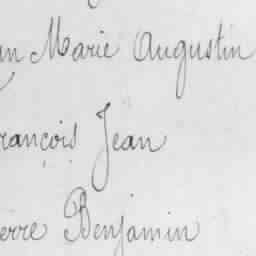 an Marie Augustin
rançois Jean
erre Benjamin